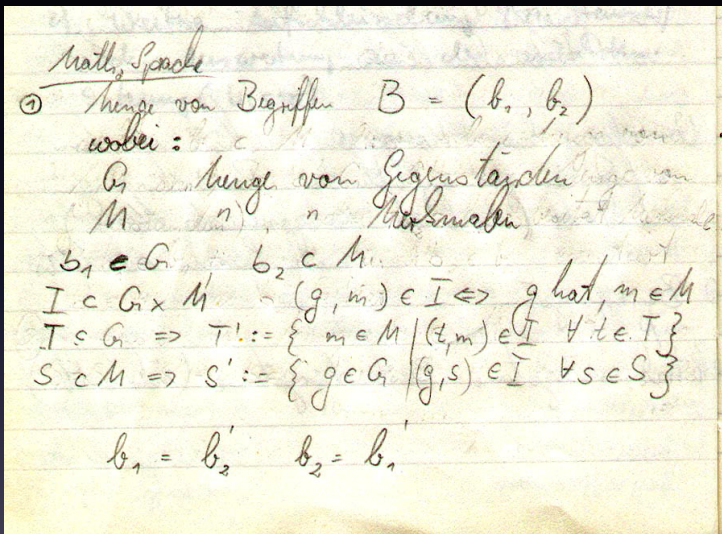 Math. Sprache
① Menge von Begriffen B = (b₁, b₂)
wobei:
G Menge von Gegenständen
M " " Merkmalen
b₁ ⊂ G, b₂ ⊂ M
I ⊂ G × M (g, m) ∈ I ⇔ g hat, m ∈ M
T ⊂ G ⇒ T' := { m ∈ M | (t, m) ∈ I ∀ t ∈ T }
S ⊂ M ⇒ S' := { g ∈ G | (g, s) ∈ I ∀ s ∈ S }
b₁ = b₂' b₂ = b₁'